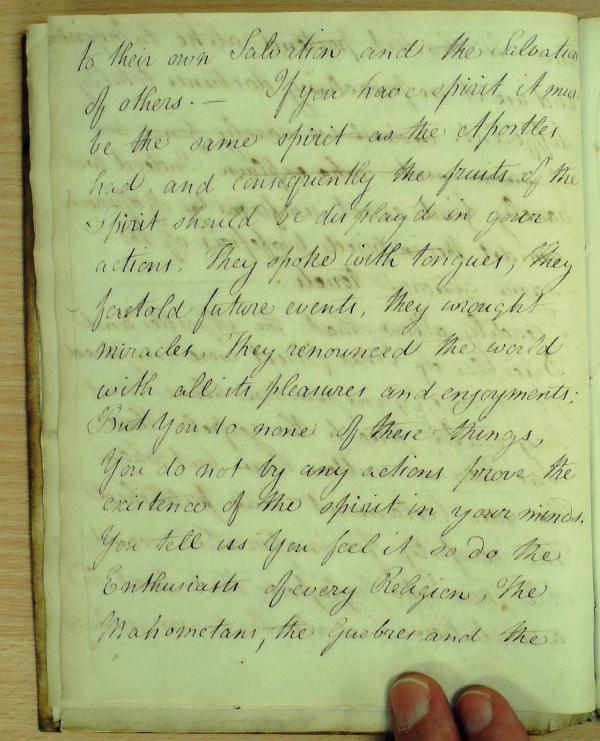 to their own Salvation and the Salvation
of others. — If you have spirit it must
be the same spirit as the Apostles
had, and consequently the fruits of the
spirit should be display'd in your
actions. They spoke with tongues, They
foretold future events, they wrought
miracles, They renounced the world
with all its pleasures and enjoyments;
But You do none of these things,
You do not by any actions prove the
existence of the spirit in your minds.
You tell us You feel it so do the
Enthusiasts of every Religion, The
Mahometans, the Guebres and the